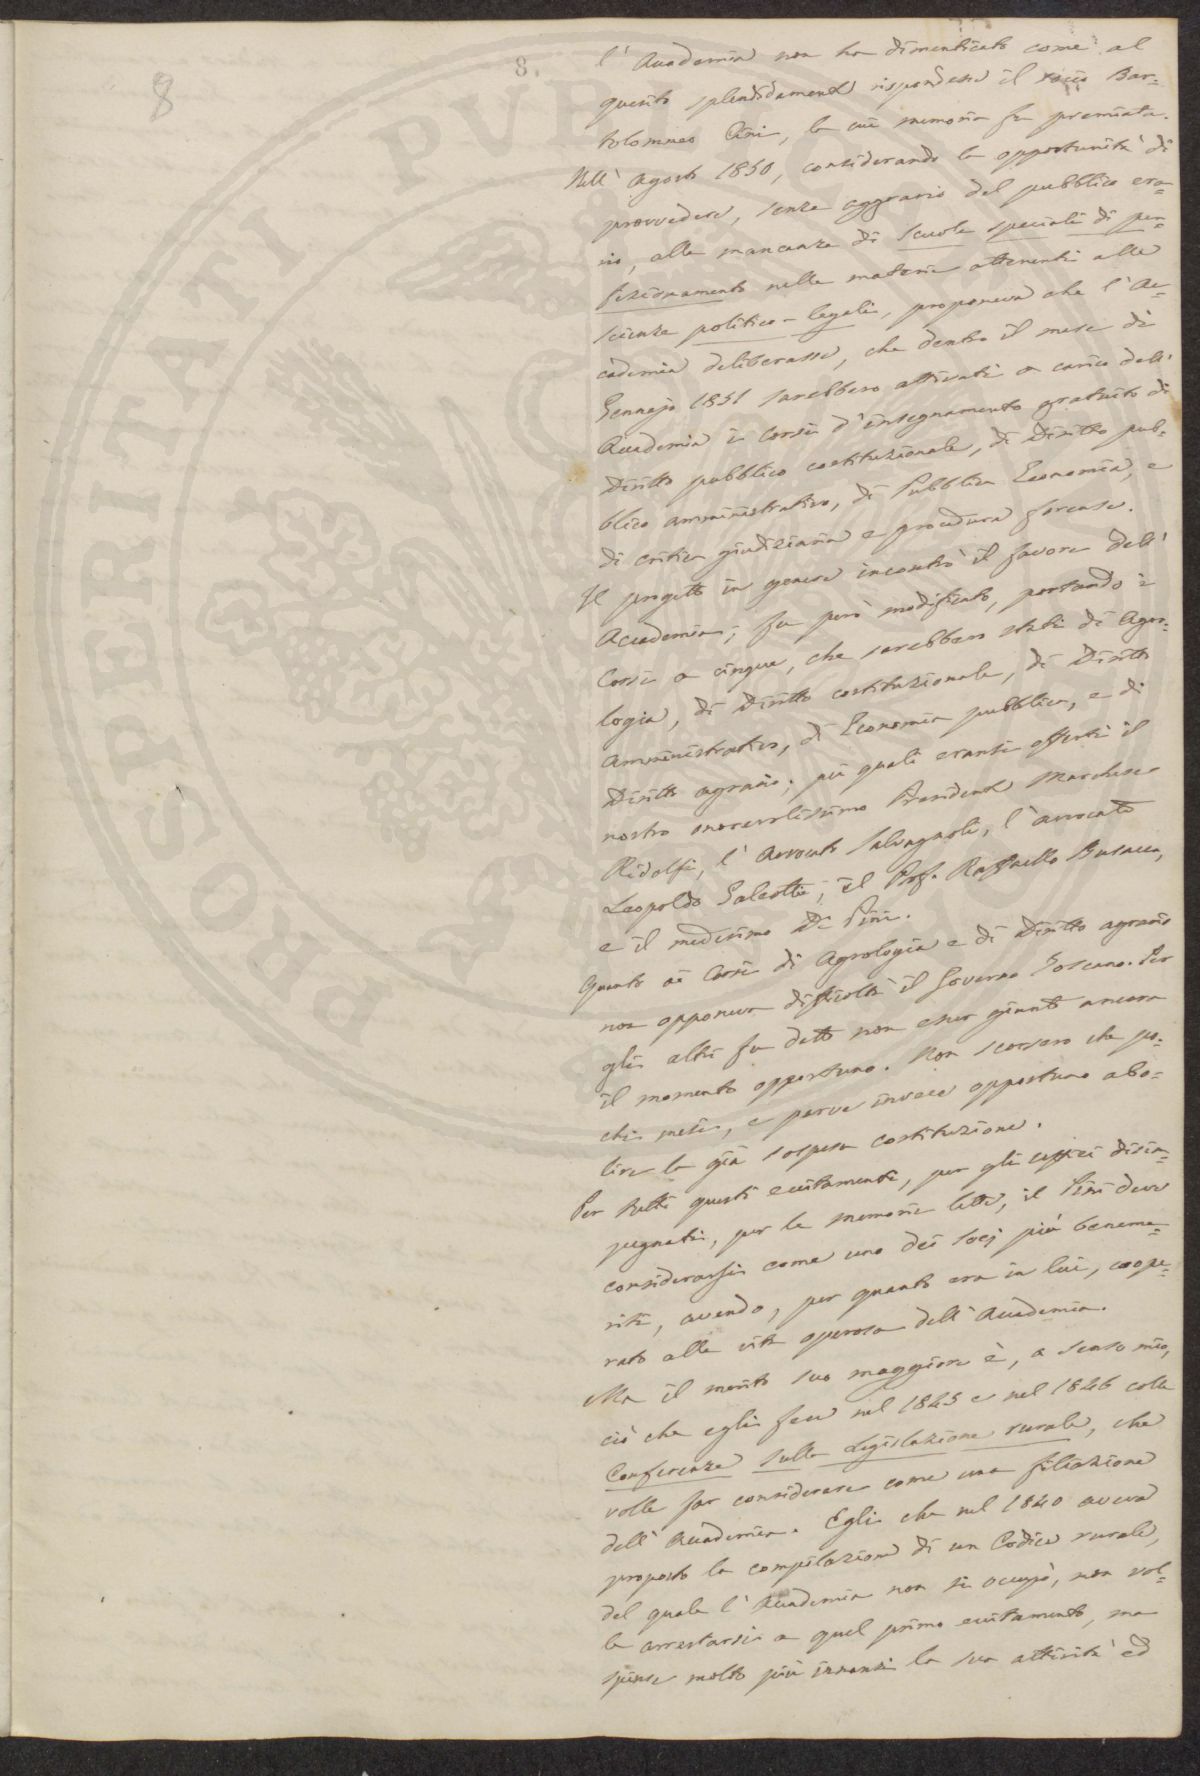 8
8.
l'Accademia non ha dimenticato come al
quesito splendidamente rispondesse il socio Bar=
tolommeo Cini, la cui memoria fu premiata.
Nell'Agosto 1850, considerando la opportunità di
provvedere, senza aggravio del pubblico era=
rio, alla mancanza di scuole speciali di per=
fezionamento nelle materie attenenti alle
scienze politico-legali, proponeva che l'Ac=
cademia deliberasse, che dentro il mese di
Gennajo 1851 sarebbero attivati a carico dell'
Accademia i corsi d'insegnamento gratuito di
Diritto pubblico costituzionale, di Diritto pub=
blico amministrativo, di Pubblica Economia, e
di critica giudiziaria e procedura forense.
Il progetto in genere incontrò il favore dell'
Accademia; fu però modificato, portando i
Corsi a cinque, che sarebbero stati di Agro=
logia, di Diritto costituzionale, di Diritto
Amministrativo, di Economia pubblica, e di
Diritto agrario; pei quali eransi offerti il
nostro onorevolissimo Presidente Marchese
Ridolfi, l'Avvocato Salvagnoli, l'avvocato
Leopoldo Galeotti, il Prof. Raffaello Busacca,
e il medesimo De Pini.
Quanto ai Corsi di Agrologia e di Diritto agrario
non opponeva difficoltà il Governo Toscano. Per
gli altri fu detto non esser giunto ancora
il momento opportuno. Non scorsero che po=
chi mesi, e parve invece opportuno abo=
lire la già sospesa costituzione.
Per tutti questi eccitamenti, per gli uffici disim=
pegnati, per le memorie lette, il Pini deve
considerarsi come uno dei Socj più beneme=
riti, avendo, per quanto era in lui, coope=
rato alla vita operosa dell'Accademia.
Ma il merito suo maggiore è, a senso mio,
ciò che egli fece nel 1845 e nel 1846 colle
Conferenze sulla Legislazione rurale, che
volle far considerare come una filiazione
dell'Accademia. Egli che nel 1840 aveva
proposto la compilazione di un Codice rurale,
del quale l'Accademia non si occupò, non vol=
le arrestarsi a quel primo eccitamento, ma
spinse molto più innanzi la sua attività ed
PROSPERITATI PVBL